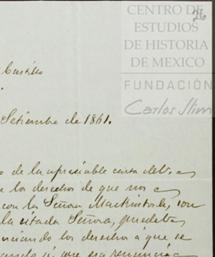 CENTRO DE
ESTUDIOS
DE HISTORIA
DE MEXICO
FUNDACIÓN
Carlos Slim
26
Castillo
Setiembre de 1861.
de la apreciable carta del
los derechos de que nos
con la Señora Mackintosh, con
la citada Señora,
los derechos á que se
y que esa renuncia